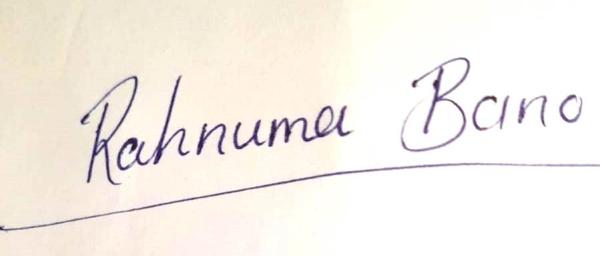 Rahnuma Bano